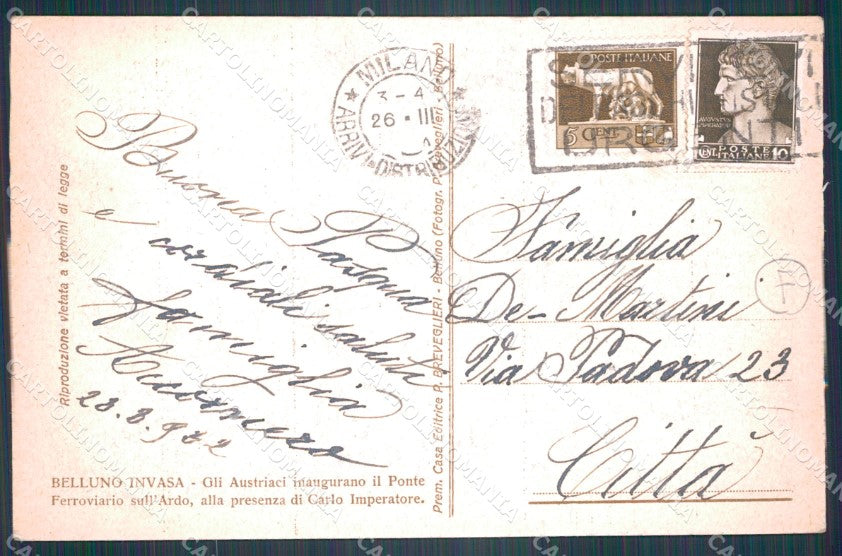 Buona Pasqua
e cordiali saluti
famiglia
23.3.932
MILANO
3-4
26 · III
ARRIVI E DISTRIBUZIONE
POSTE ITALIANE
5 CENT
URGENTI
POSTE
ITALIANE
CENT. 10
Famiglia
De-Martini
Via Padova 23
Città
Riproduzione vietata a termini di legge
Prem. Casa Editrice P. BREVEGLIERI - Belluno (Fotogr. P. Breveglieri - Belluno)
BELLUNO INVASA - Gli Austriaci inaugurano il Ponte
Ferroviario sull'Ardo, alla presenza di Carlo Imperatore.
CARTOLINOMANIA